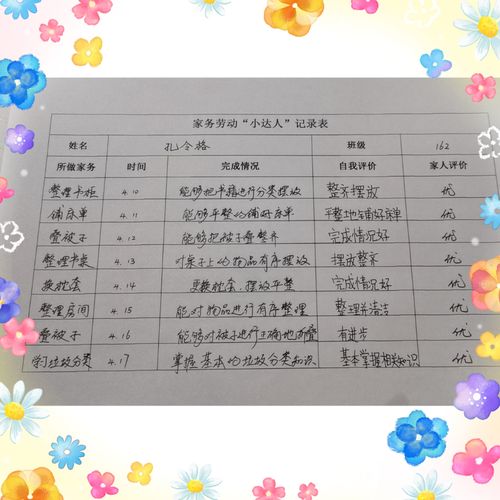 家务劳动“小达人”记录表
姓名 孔令格 班级 162
所做家务 时间 完成情况 自我评价 家人评价
整理书柜 4.10 能够把书籍进行分类摆放 整齐摆放 优
铺床单 4.11 能够平整的铺好床单 平整地铺好床单 优
叠被子 4.12 能够把被子叠整齐 完成情况好 优
整理书桌 4.13 对桌子上的物品有序摆放 摆放整齐 优
换枕套 4.14 更换枕套、摆放平整 完成情况好 优
整理房间 4.15 能对物品进行有序整理 整理并清洁 优
叠被子 4.16 能够对被子进行正确地折叠 有进步 优
学习垃圾分类 4.17 掌握基本的垃圾分类知识 基本掌握相关知识 优